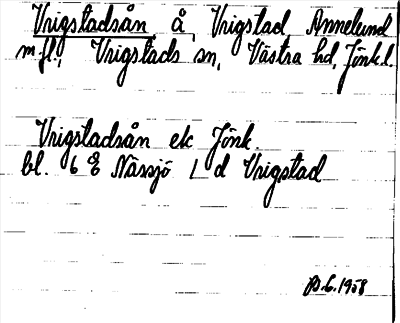 Vrigstadsån å, Vrigstad, Annelund
m.fl., Vrigstads sn, Västra hd, Jönk.l.
Vrigstadsån ek Jönk.
bl. 6 E Nässjö 1 d Vrigstad
1958